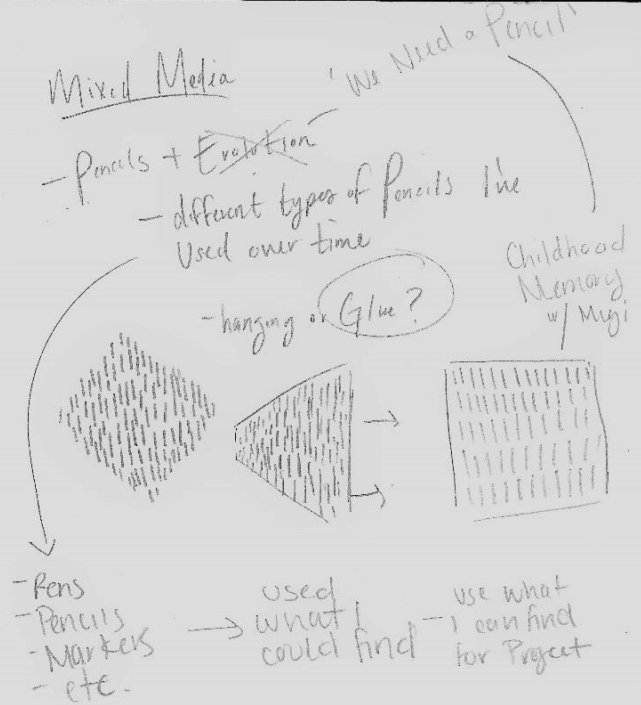 Mixed Media
'We Need a Pencil'
- Pencils + Evolution
- different types of Pencils I've
Used over time
Childhood
Memory
w/ Mugi
- hanging or Glue?
- Pens
- Pencils
- Markers
- etc.
used
what I
could find
- use what
I can find
for Project